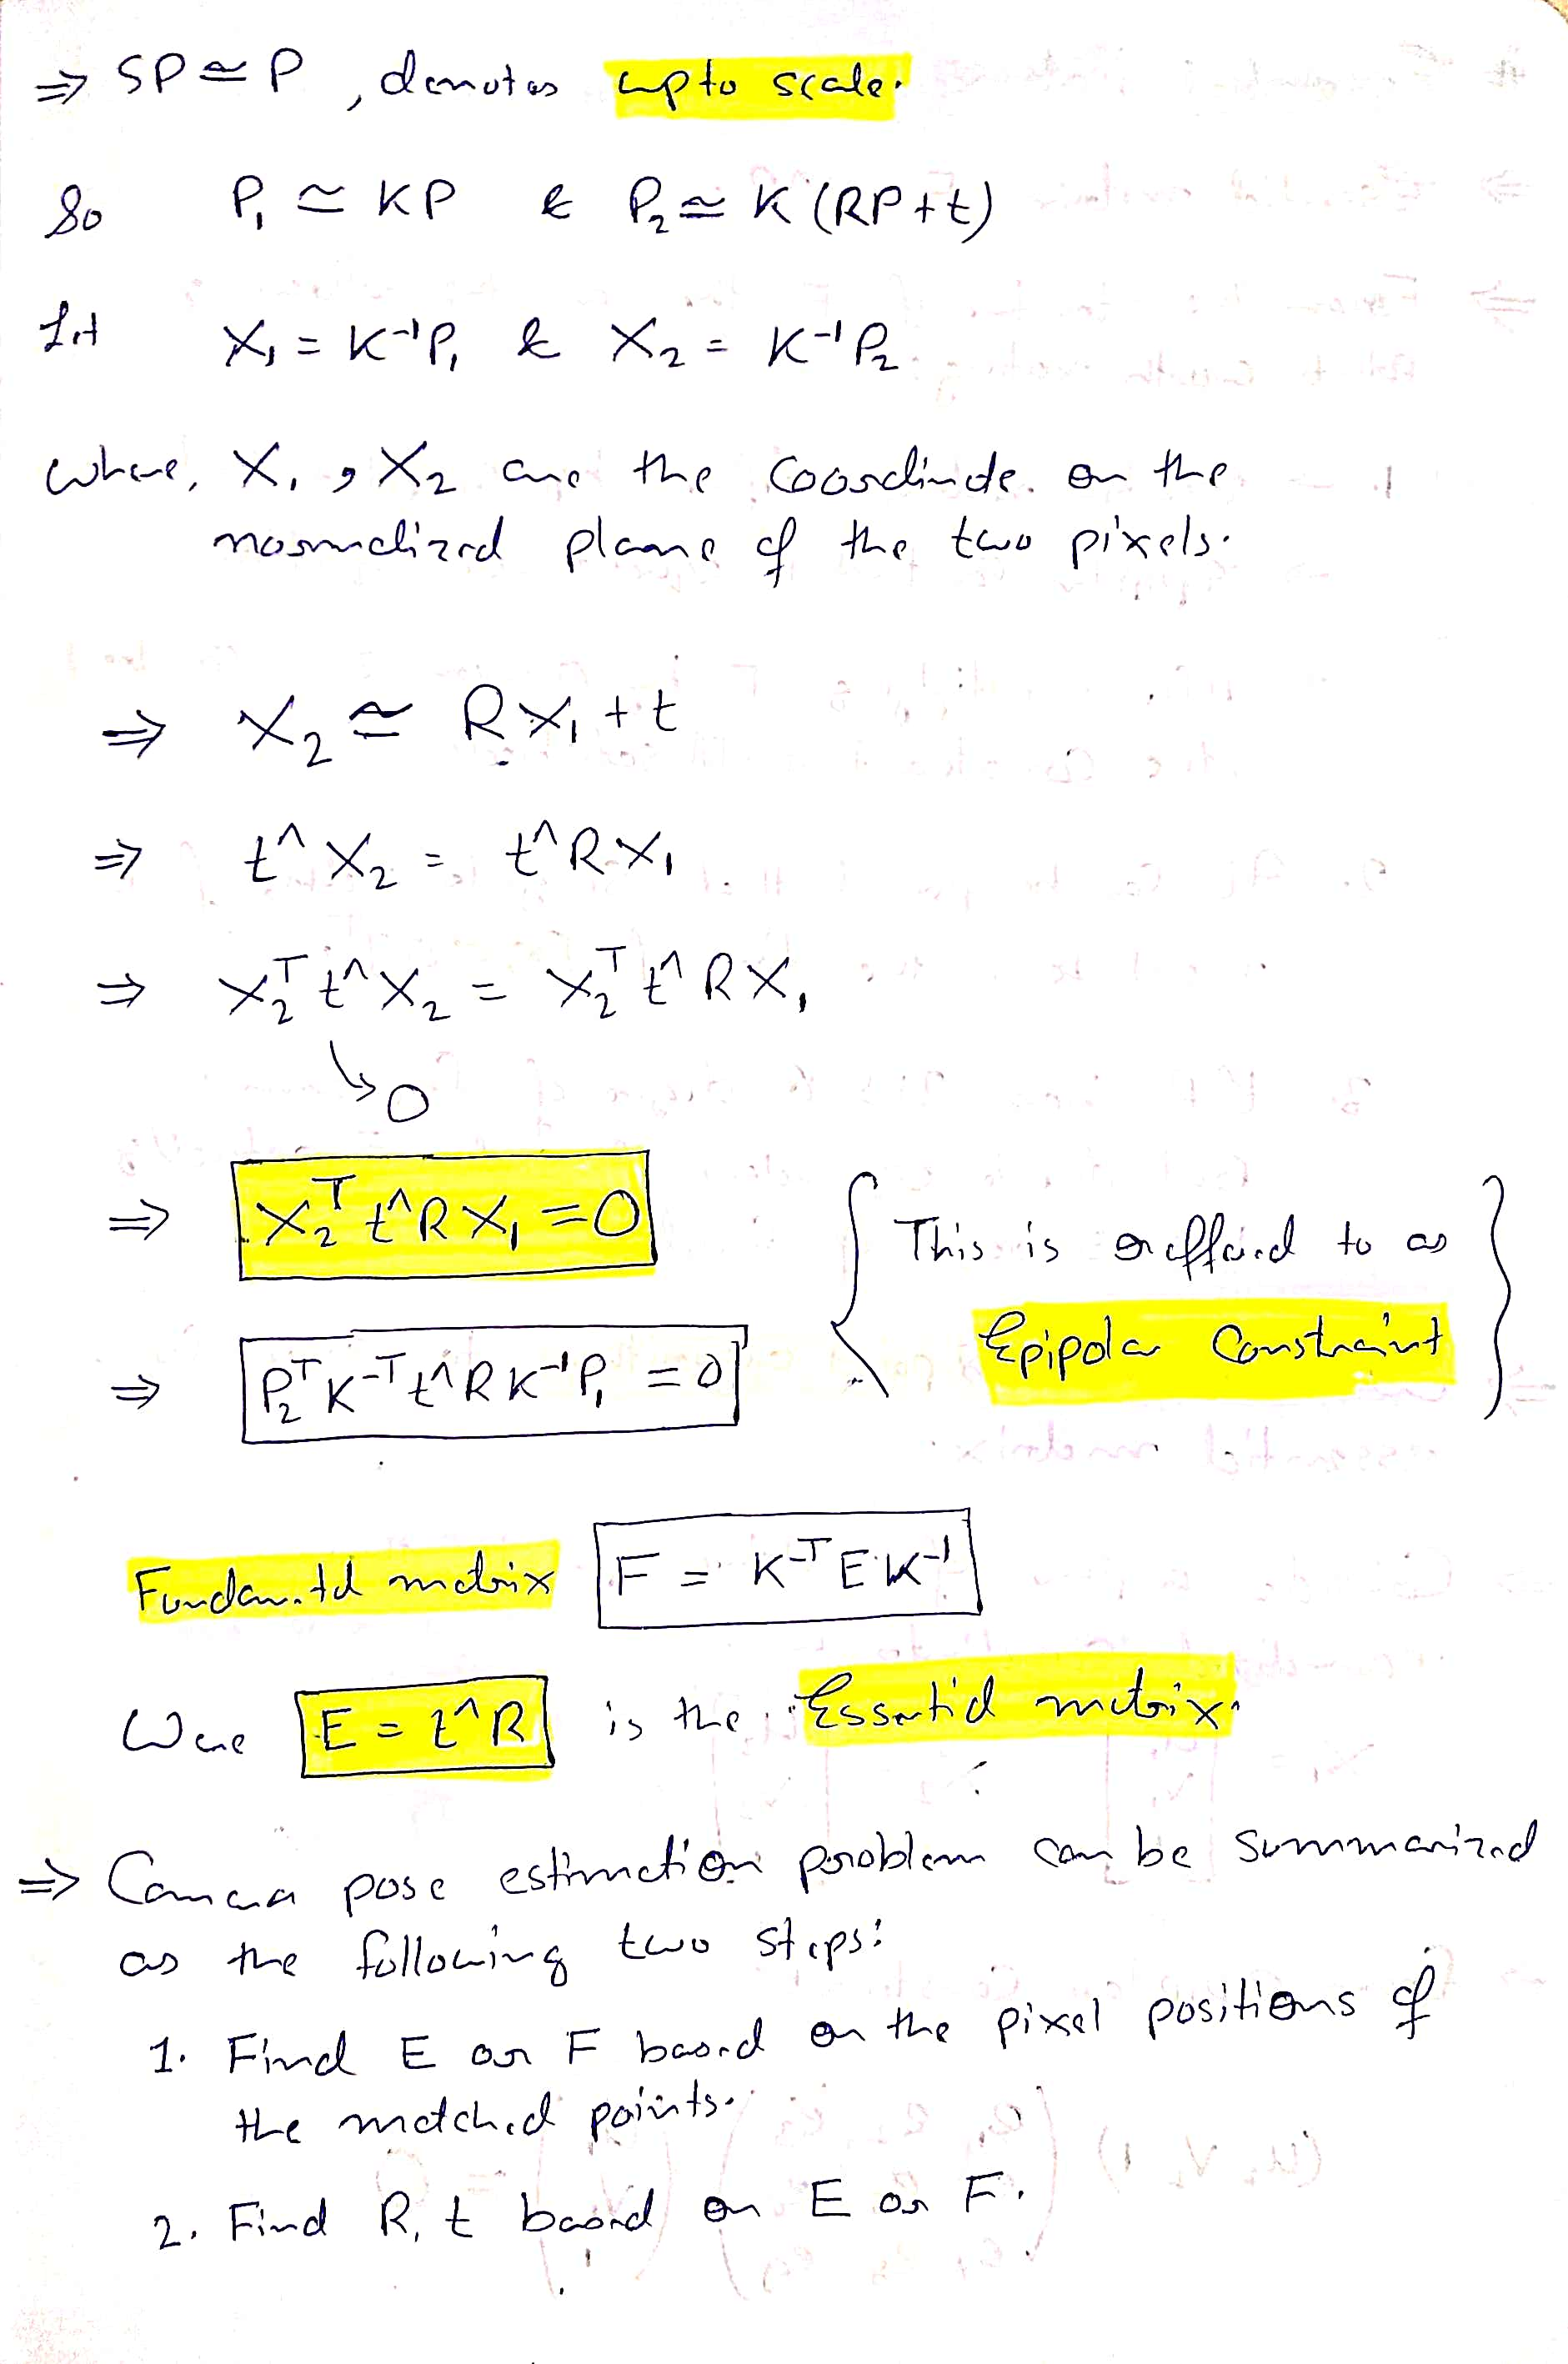 ⇒ SP ≃ P , denotes upto scale.
So P₁ ≃ KP & P₂ ≃ K(RP+t)
Let X₁ = K⁻¹P₁ & X₂ = K⁻¹P₂
where, X₁ , X₂ are the coordinate on the
normalized plane of the two pixels.
⇒ X₂ ≃ RX₁ + t
⇒ t^X₂ = t^RX₁
⇒ X₂ᵀ t^X₂ = X₂ᵀ t^RX₁
↳ 0
⇒ X₂ᵀ t^RX₁ = 0 { This is reffered to as
⇒ P₂ᵀK⁻ᵀt^RK⁻¹P₁ = 0 Epipolar Constraint }
Fundamental matrix F = K⁻ᵀEK⁻¹
Were E = t^R is the Essential matrix.
⇒ Camera pose estimation problem can be summarized
as the following two steps:
1. Find E or F based on the pixel positions of
the matched points.
2. Find R, t based on E or F.